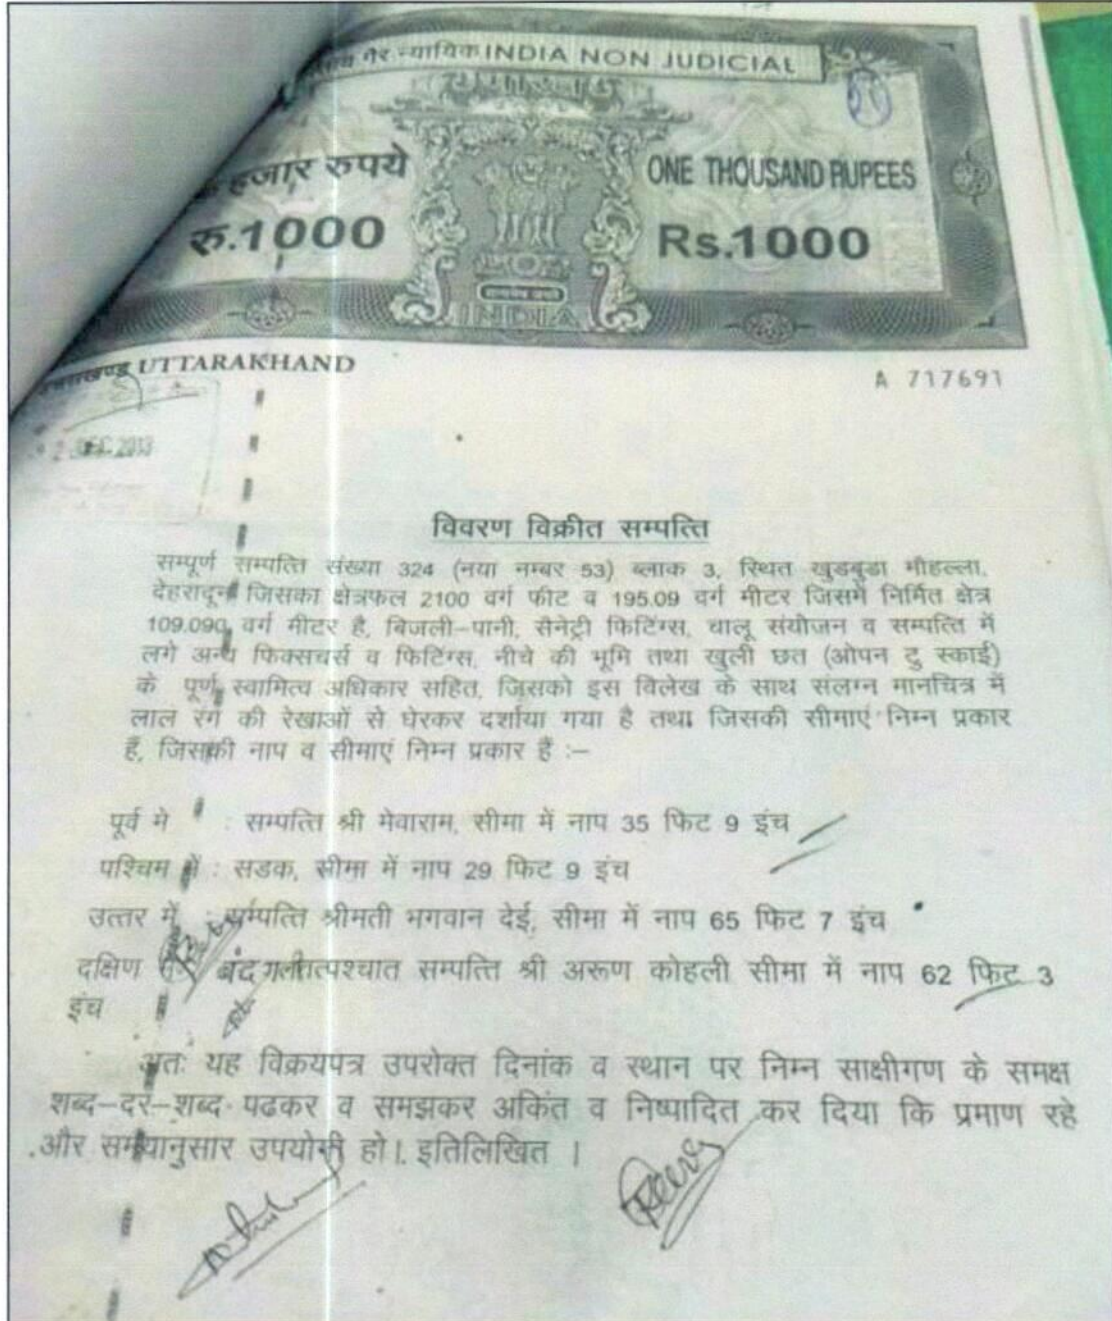 गैर न्यायिक INDIA NON JUDICIAL
हजार रुपये
ONE THOUSAND RUPEES
रु.1000
Rs.1000
INDIA
UTTARAKHAND
A 717691
2 DEC 2013
विवरण विक्रीत सम्पत्ति
सम्पूर्ण सम्पत्ति संख्या 324 (नया नम्बर 53) ब्लाक 3, स्थित खुडबुडा मौहल्ला,
देहरादून जिसका क्षेत्रफल 2100 वर्ग फीट व 195.09 वर्ग मीटर जिसमें निर्मित क्षेत्र
109.090 वर्ग मीटर है, बिजली-पानी, सैनेट्री फिटिंग्स, चालू संयोजन व सम्पत्ति में
लगे अन्य फिक्सचर्स व फिटिंग्स, नीचे की भूमि तथा खुली छत (ओपन टु स्काई)
के पूर्ण स्वामित्व अधिकार सहित, जिसको इस विलेख के साथ संलग्न मानचित्र में
लाल रंग की रेखाओं से घेरकर दर्शाया गया है तथा जिसकी सीमाएं निम्न प्रकार
हैं, जिसकी नाप व सीमाएं निम्न प्रकार हैं :–
पूर्व मे : सम्पत्ति श्री मेवाराम, सीमा में नाप 35 फिट 9 इंच
पश्चिम में : सडक, सीमा में नाप 29 फिट 9 इंच
उत्तर में : सम्पत्ति श्रीमती भगवान देई, सीमा में नाप 65 फिट 7 इंच
दक्षिण बंद गली तत्पश्चात सम्पत्ति श्री अरूण कोहली सीमा में नाप 62 फिट 3
इंच
अतः यह विक्रयपत्र उपरोक्त दिनांक व स्थान पर निम्न साक्षीगण के समक्ष
शब्द–दर–शब्द पढकर व समझकर अकिंत व निष्पादित कर दिया कि प्रमाण रहे
और समयानुसार उपयोगी हो। इतिलिखित ।